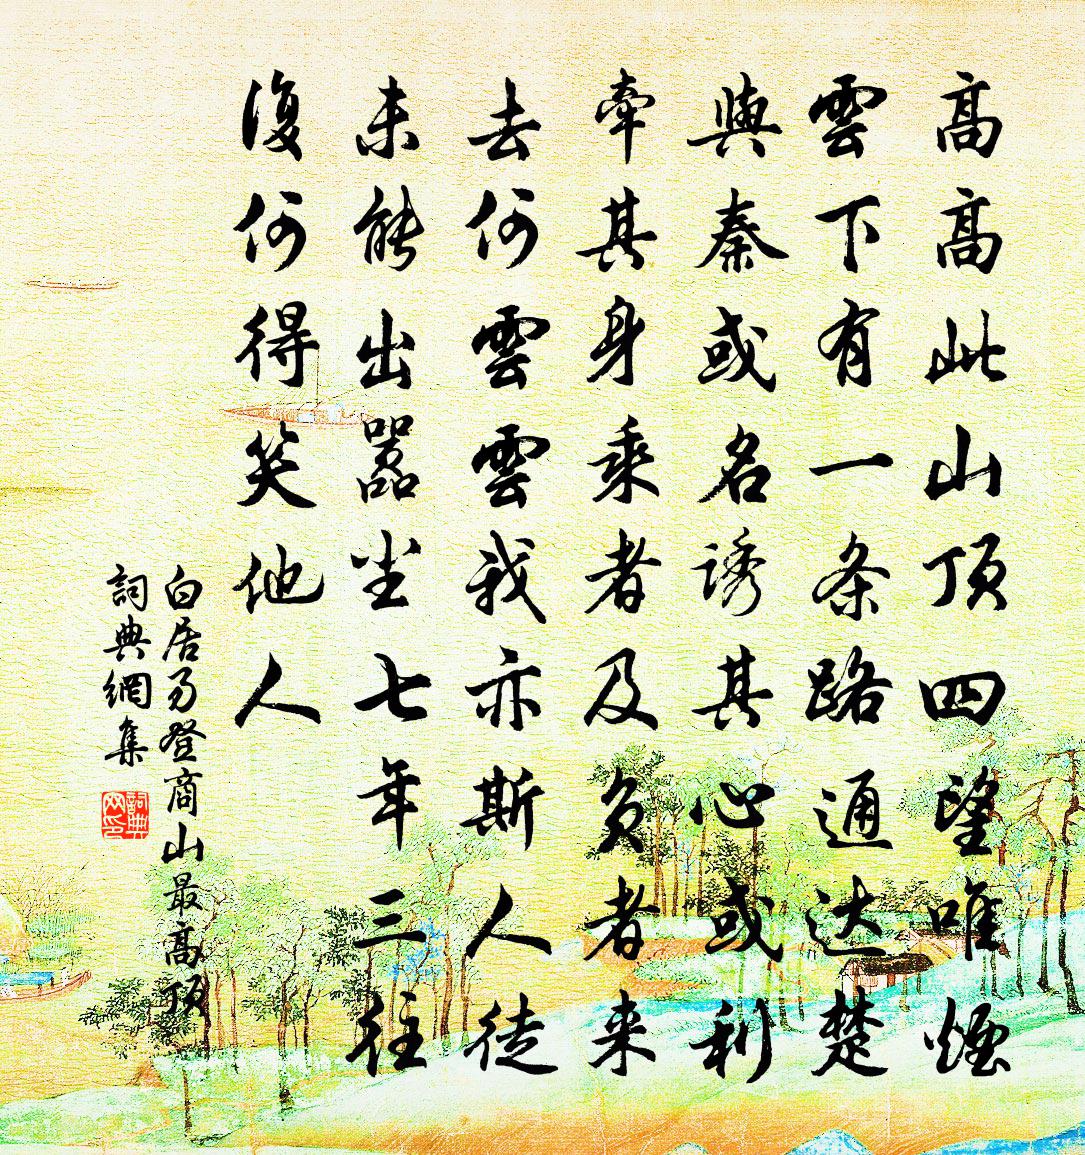 高高此山頂四望唯煙
雲下有一条路通达楚
與秦或名誘其心或利
牵其身乘者及负者来
去何雲雲我亦斯人徒
未能出嚣尘七年三往
復何得笑他人
白居易登商山最高頂
詞典網集
詞典網印